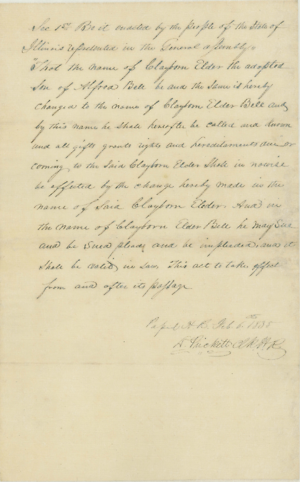 Sec 1st Be it enacted by the People of the State of
Illinois represented in the General assembly
That the name of Clayborn Elder the adopted
Son of Alfred Bell be and the Same is hereby
changed to the name of Clayborn Elder Bell and
by this name he shall hereafter be called and known
and all gifts grants rights and hereditaments due or
coming to the Said Clayborn Elder Shall in nowise
be affected by the change hereby made in the
name of Said Clayborn Elder. And in
the name of Clayborn Elder Bell he may Sue
and be Sued plead and be impleaded and it
Shall be valid in law This act to take effect
from and after its passage
Passed H. R. Feb 6th 1835
D Prickett C. H. R.